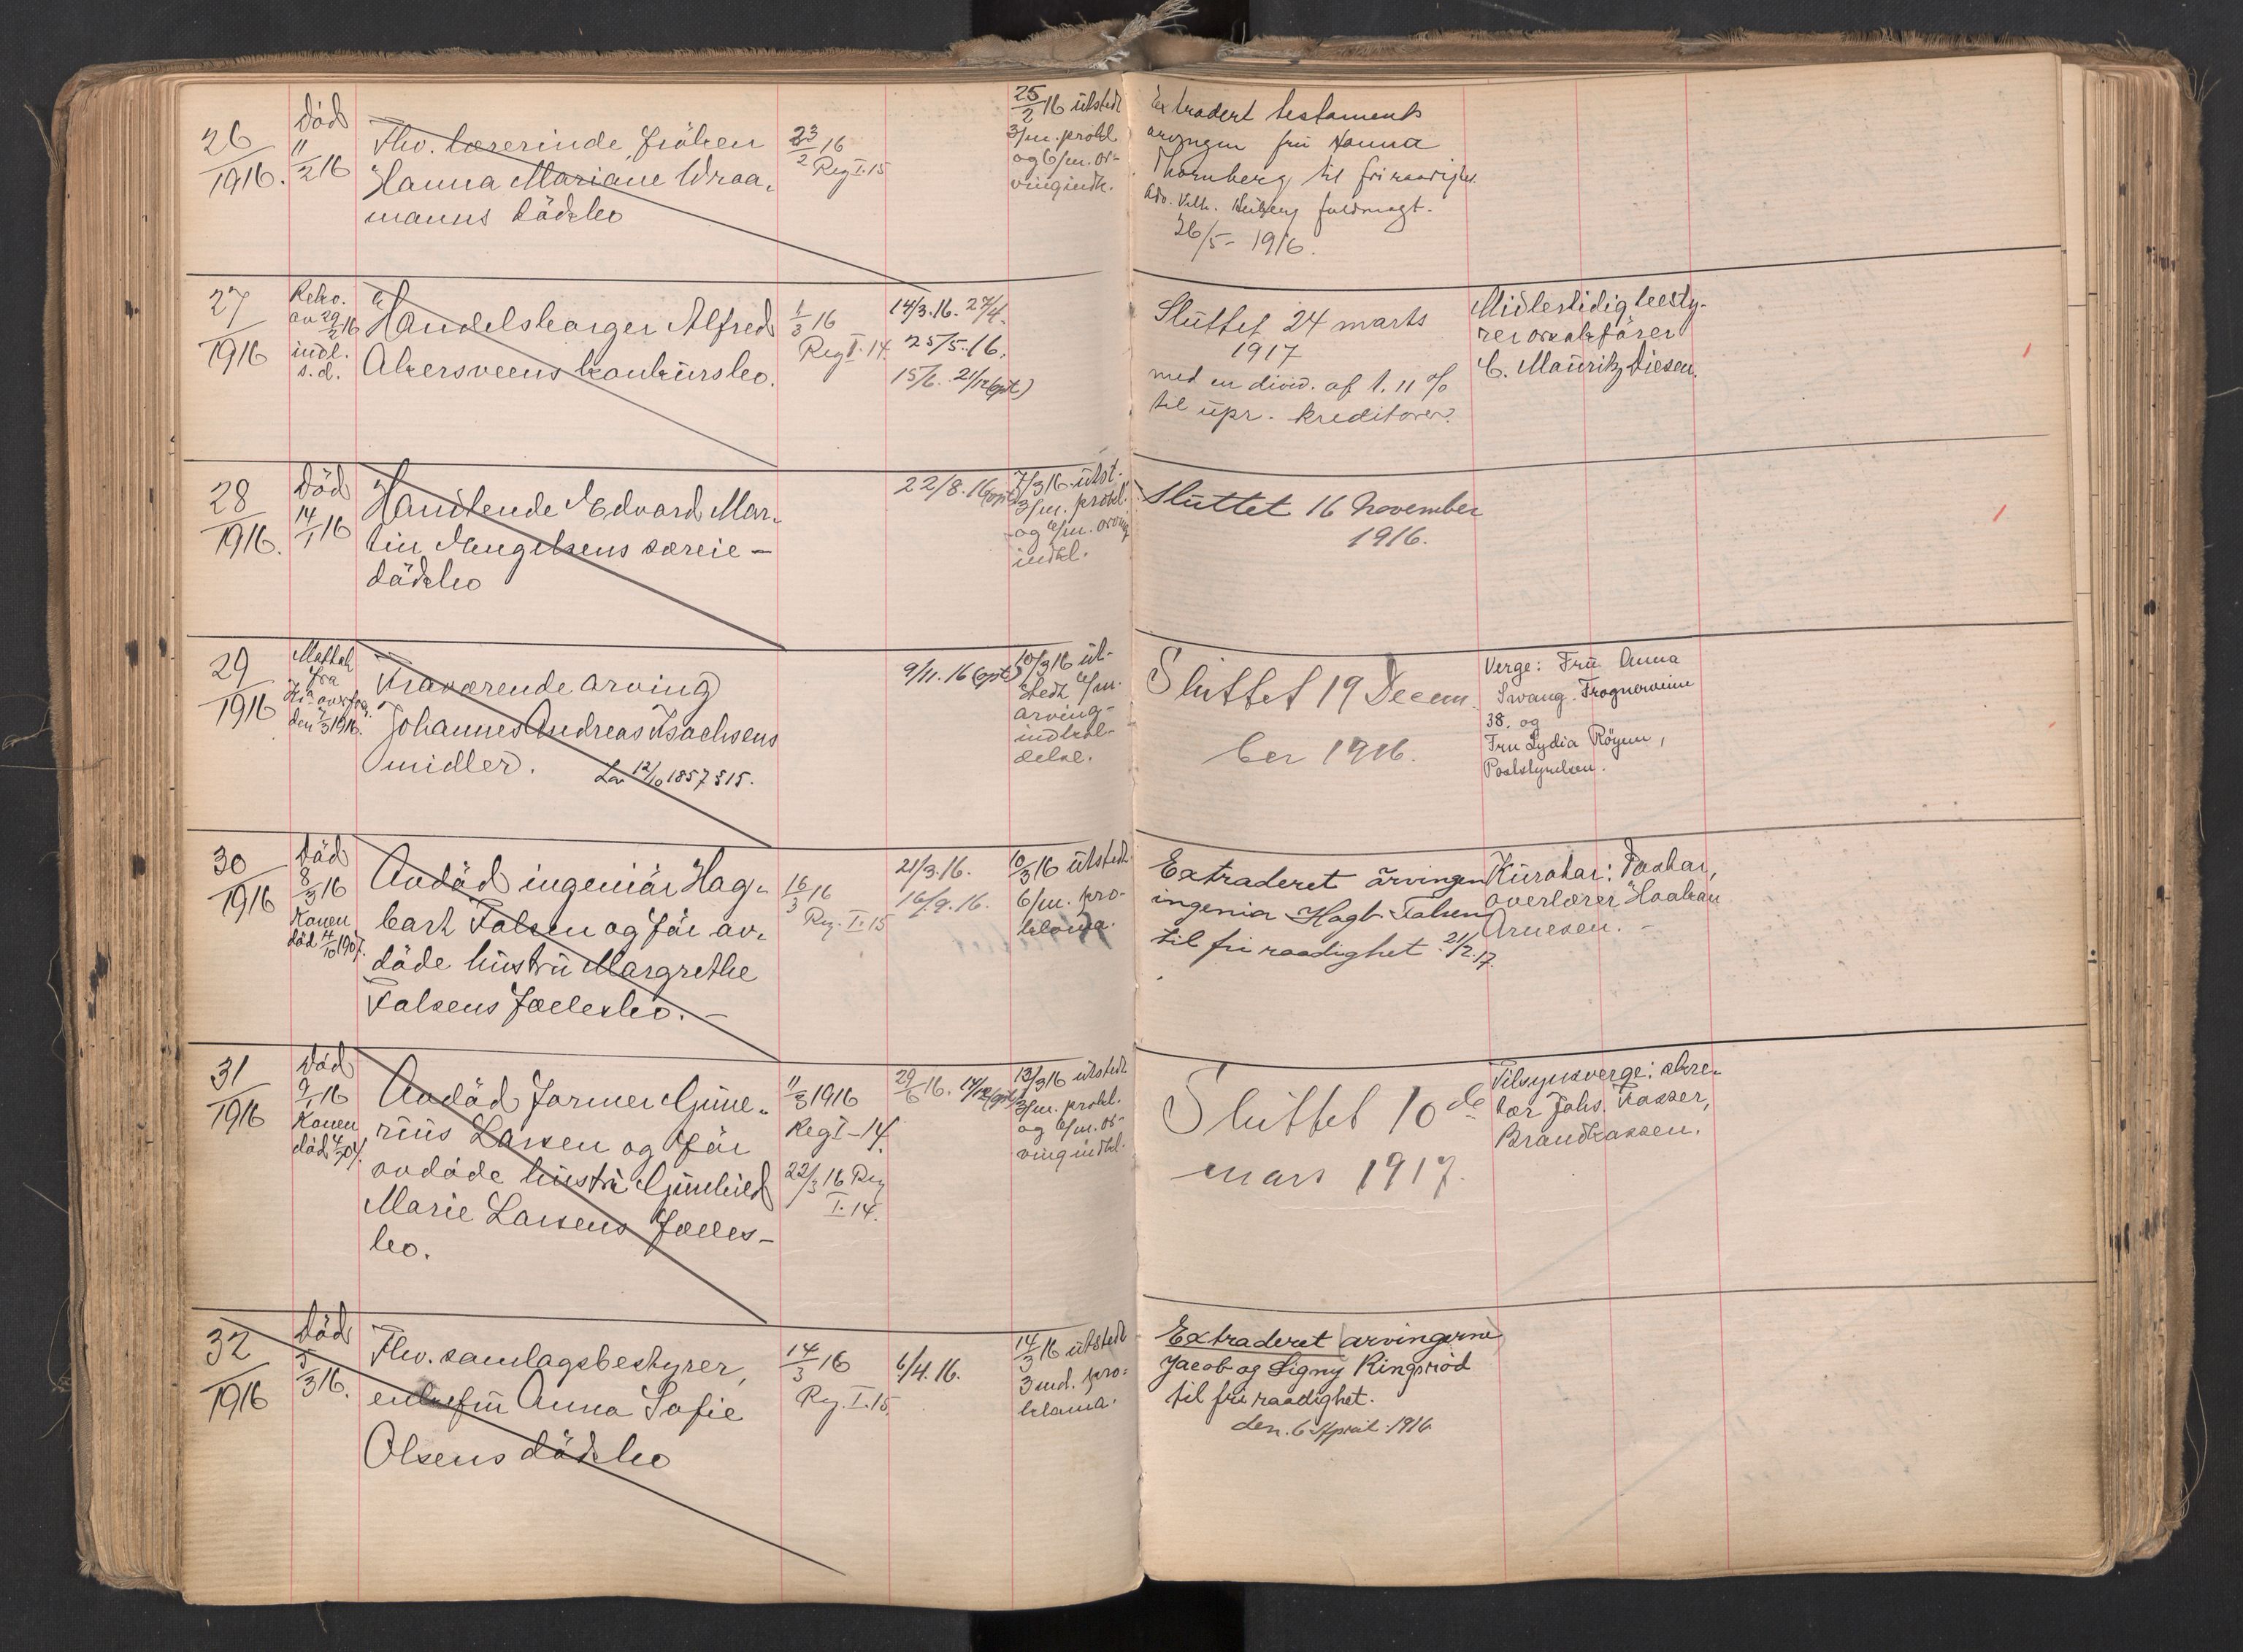 26/1916.
Död
11/2 16
Fhv. lærerinde, fröken
Hanna Mariane Wraa-
manns dödsbo
23/2 16
Reg I. 15
25/2 16 utstedt
3/m. prokl.
og 6/m. ar-
vingindk.
Extradert testaments
arvingen fru Hanna
Thornberg til fri raadighet.
Adv. Vilh. fuldmagt.
26/5 - 1916.
27/1916
Rekv.
av 29/2 16
indl.
s. d.
Handelsborger Alfred
Akersveens konkursbo.
1/3 16
Reg I. 14
14/3. 16. 27/4.
25/5. 16.
15/6. 21/12 (opt)
Sluttet 24 marts
1917
med en divid. af 1. 11 %
til upr. kreditorer.
Midlertidig besty-
rer orsakförer
C. Mauritz Diesen.
28/1916.
Död
14/1 16
Handlende Edvard Mar-
tin Mengelsens særeie -
dödsbo
22/8. 16 (opt)
7/3 16 utst.
3/m. prokl.
og 6/m. arving
indkl.
Sluttet 16 November
1916.
29/1916
Mottat
fra
Kr.a overfog.
den 7/3 1916.
Fraværende arving
Johannes Andreas Isachsens
midler.
Lov 12/10 1857 § 15.
9/11. 16 (opt)
10/3 16 ut-
stedt 6/m.
arving-
indkal-
delse.
Sluttet 19 Decem-
ber 1916.
Verge: Fru Anna
Swang. Frognerveien
38. og
Fru Lydia Röyem,
Poststyrelsen.
30/1916
Död
8/3 16
Konen
död 4/10 1907.
Avdöd ingeniör Hag-
bart Falsen og för av-
döde hustru Margrethe
Falsens fællesbo. -
16/3 16
Reg. I. 15
21/3. 16.
16/9. 16.
10/3 16 utstedt
6/m. pro-
klama.
Extraderet arvingen
ingeniør Hagb. Falsen
til fri raadighet 21/2. 17.
Kurator: Faktor,
overlærer Haakon
Arnesen. -
31/1916
Död
9/1 16
Konen
död 4/7 04.
Avdöd farmer Gune-
rius Larsen og för
avdöde hustru Gunhild
Marie Larsens fælles-
bo.
11/3 1916
Reg I - 14.
22/3 16 Reg
I. 14.
29/6 16. 14/12 (opt)
13/3 16 utstedt
3/m. prokl.
og 6/m. ar-
vingindkl.
Sluttet 10de
mars 1917.
Tilsynsverge: sekre-
tær Johs. Fasser,
Brandkassen.
32/1916
Död
5/3 16.
Fhv. samlagsbestyrer,
enkefru Anna Sofie
Olsens dödsbo
14/3 16
Reg. I. 15
6/4. 16.
14/3 16 utstedt
3 md. pro-
klama.
Extraderet arvingerne
Jacob og Signy Ringsröd
til fri raadighet.
den. 6 April 1916